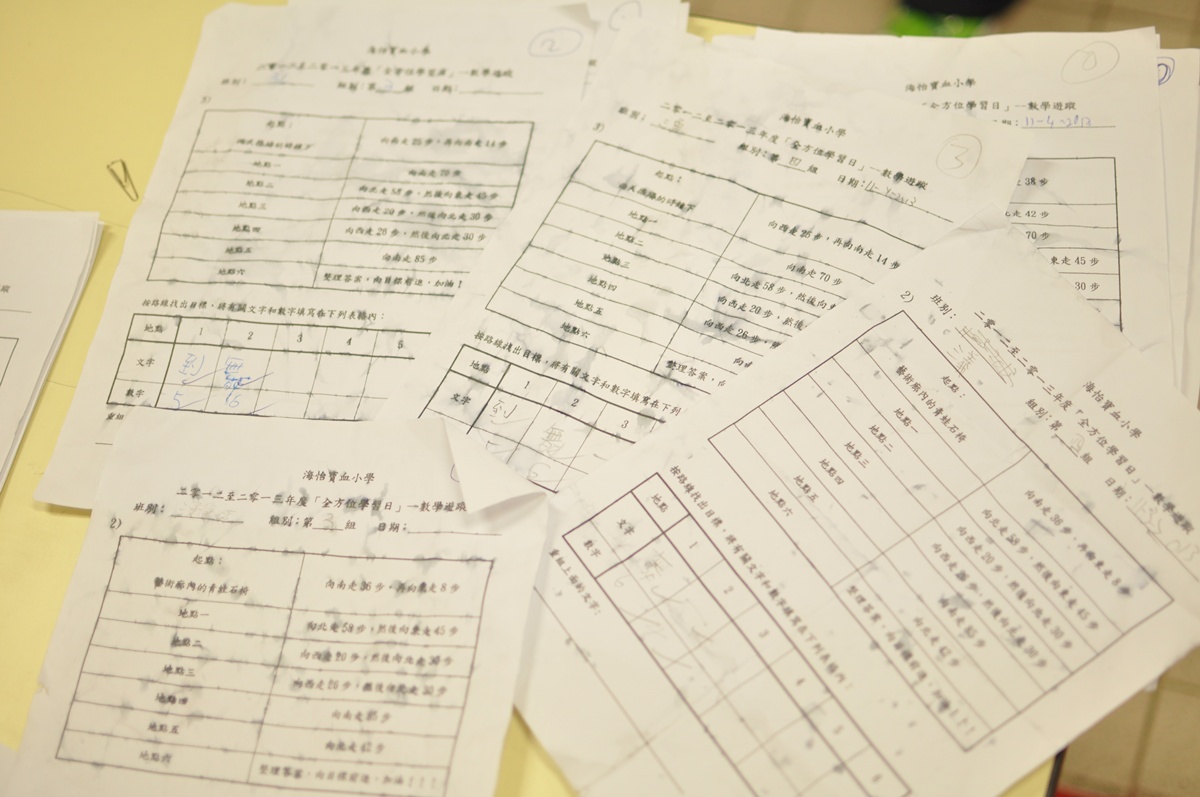 海怡寶血小學
二零一二至二零一三年度「全方位學習日」一數學遊蹤
班別： 組別：第 組 日期：
3)
起點：
向西走26步，再向南走14步
地點一 向南走70步
地點二 向北走58步，然後向東走45步
地點三 向西走20步，然後向北走30步
地點四 向西走26步，然後向北走30步
地點五 向南走85步
地點六 整理答案，向目標前進，加油！
按路線找出目標，將有關文字和數字填寫在下列表格內：
地點 1 2 3 4 5
文字 到 無
數字 5 6
海怡寶血小學
二零一二至二零一三年度「全方位學習日」一數學遊蹤
班別： 組別：第 四 組 日期：11-4-2013
3
3)
起點：
向西走26步，再向南走14步
地點一 向南走70步
地點二 向北走58步，然後向
地點三 向西走20步，然後
地點四 向西走26步，
地點五 向
地點六 整理答案，
按路線找出目標，將有關文字和數字填寫在下列
地點 1 2 3
文字 到 無
海怡寶血小學
「全方位學習日」一數學遊蹤
期：11-4-2013
38步
走42步
70步
東走45步
30步
海怡寶血小學
二零一二至二零一三年度「全方位學習日」一數學遊蹤
班別： 組別：第 3 組 日期：
2)
起點：
藝術廊內的青蛙石椅 向南走36步，再向東走8步
地點一 向北走58步，然後向東走45步
地點二 向西走20步，然後向北走30步
地點三 向西走26步，然後向北走30步
地點四 向南走85步
地點五 向北走42步
地點六 整理答案，向目標前進，加油！！！
海怡寶血小學
二零一二至二零一三年度「全方位學習日」一數學遊蹤
班別： 組別：第 組 日期：
2)
起點：
藝術廊內的青蛙石椅 向南走36步，再向東走8步
地點一 向北走58步，然後向東走45步
地點二 向西走20步，然後向北走30步
地點三 向西走26步，然後向北走30步
地點四 向南走85步
地點五 向北走42步
地點六 整理答案，向目標前進，加油！！！
按路線找出目標，將有關文字和數字填寫在下列表格內：
地點 1 2 3 4 5 6
文字
數字
重組上面的文字：